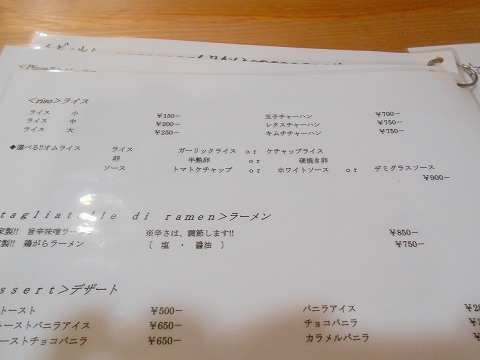 <riso>ライス
ライス 小 ¥150− 玉子チャーハン ¥700−
ライス 中 ¥200− レタスチャーハン ¥750−
ライス 大 ¥250− キムチチャーハン ¥750−
◆選べる!!オムライス ライス ガーリックライス or ケチャップライス
卵 半熟卵 or 硬焼き卵
ソース トマトケチャップ or ホワイトソース or デミグラスソース
¥900−
tagliatelle di ramen>ラーメン
製!! 旨辛味噌ラーメン ※辛さは、調節します!! ¥850−
製!! 鶏がらラーメン 〔 塩 ・ 醤油 〕 ¥750−
ssert>デザート
トースト ¥500− バニラアイス
ーストバニラアイス ¥650− チョコバニラ
ーストチョコバニラ ¥650− カラメルバニラ